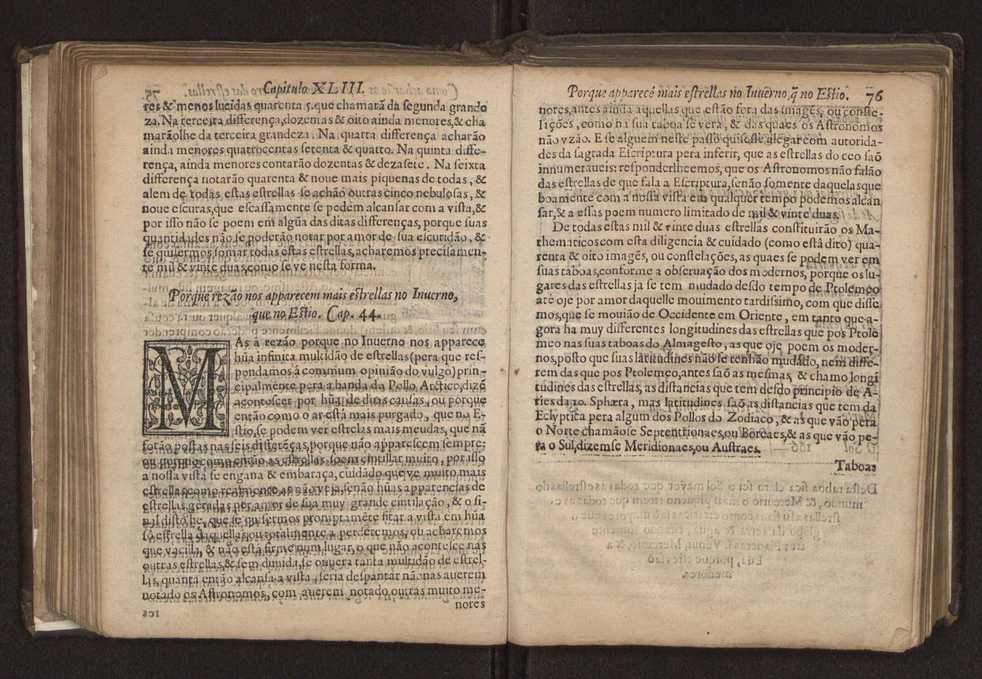 Capitulo XLIII.
res & menos lucidas quarenta 5. que chamarã da segunda grande
za. Na terceira differença, dozentas & oito ainda menores, & cha
marãolhe da terceira grandeza. Na quarta differença acharão
ainda menores quatrocentas setenta & quatro. Na quinta diffe-
rença, ainda menores contarão dozentas & dezasete. Na seixta
differença notarão quarenta & noue mais piquenas de todas, &
alem de todas estas estrellas se achão outras cinco nebulosas, &
noue escuras, que escassamente se podem alcansar com a vista, &
por isso não se poem em algũa das ditas differenças, porque suas
quantidades não se poderão notar por amor de sua escuridão, &
se quisermos somar todas estas estrellas, acharemos precisamen-
te mil & vinte duas, como se ve nesta forma.
Porque rezão nos apparecem mais estrellas no Inuerno,
que no Estio. Cap. 44.
MAs à rezão porque no Inuerno nos apparece
hũa infinita multidão de estrellas (pera que res-
pondamos à commum opinião do vulgo) prin-
cipalmente pera a banda do Pollo Arctico, dizẽ
acontescer por hũa, de dous causas, ou porque
então como o ar está mais purgado, que no E-
stio, se podem ver estrelas mais meudas, que nã
forão postas nas seis differẽças, porque não apparescem sempre:
ou porque como então as estrellas soem cintillar muito, por isso
a nossa vista se engana & embaraça, cuidado que ve muito mais
estrellas, como quer que as não veja, senão hũas apparencias de
estrellas, geradas por amor de sua muy grande cintilação, & o si-
nal disto he, que se quisermos promptamẽte fitar a vista em hũa
só estrella daquellas, ou totalmente a perderemos, ou acharemos
que vacilla, & não está firme num lugar, o que não acontesce nas
outras estrellas, & sem duuida, se ouuera tanta multidão de estrel-
las, quanta então alcansa a vista, seria despantar não nas auerem
notado os Astronomos, com auerem notado outras muito me-
nores
Porque apparecẽ mais estrellas no Inuerno, q̃ no Estio. 76
nores, antes ainda aquellas que estão fora das imagẽs, ou conste-
lações, como na sua taboa se verá, & das quaes os Astronomos
não vzão. E se alguem neste passo quisesse alegar com autorida-
des da sagrada Escriptura pera inferir, que as estrellas do ceo saõ
innumeraueis: responderlhesemos, que os Astronomos não falão
das estrellas de que fala a Escriptura, senão somente daquelas que
boamente com a nossa vista em qualquer tempo podemos alcan
sar, & a essas poem numero limitado de mil & vinte duas.
De todas estas mil & vinte duas estrellas constituirão os Ma-
thematicos com esta diligencia & cuidado (como está dito) qua-
renta & oito imagẽs, ou constelações, as quaes se podem ver em
suas taboas, conforme a obseruação dos modernos, porque os lu-
gares das estrellas ja se tem mudado desdo tempo de Ptolemeo
até oje por amor daquelle mouimento tardissimo, com que disse
mos, que se mouião de Occidente em Oriente, em tanto que a-
gora ha muy differentes longitudines das estrellas que pos Ptole
meo nas suas taboas do Almagesto, as que oje poem os moder-
nos, posto que suas latitudines não se tenhão mudado, nem diffe-
rem das que pos Ptolemeo, antes saõ as mesmas, & chamo longi
tudines das estrellas, as distancias que tem desdo principio de A-
ries da 10. Sphæra, mas latitudines saõ as distancias que tem da
Eclyptica pera algum dos Pollos do Zodiaco, & as que vão pera
o Norte chamãose Septentrionaes, ou Boreaes, & as que vão pe-
ra o Sul, dizemse Meridionaes, ou Austraes.
Taboas